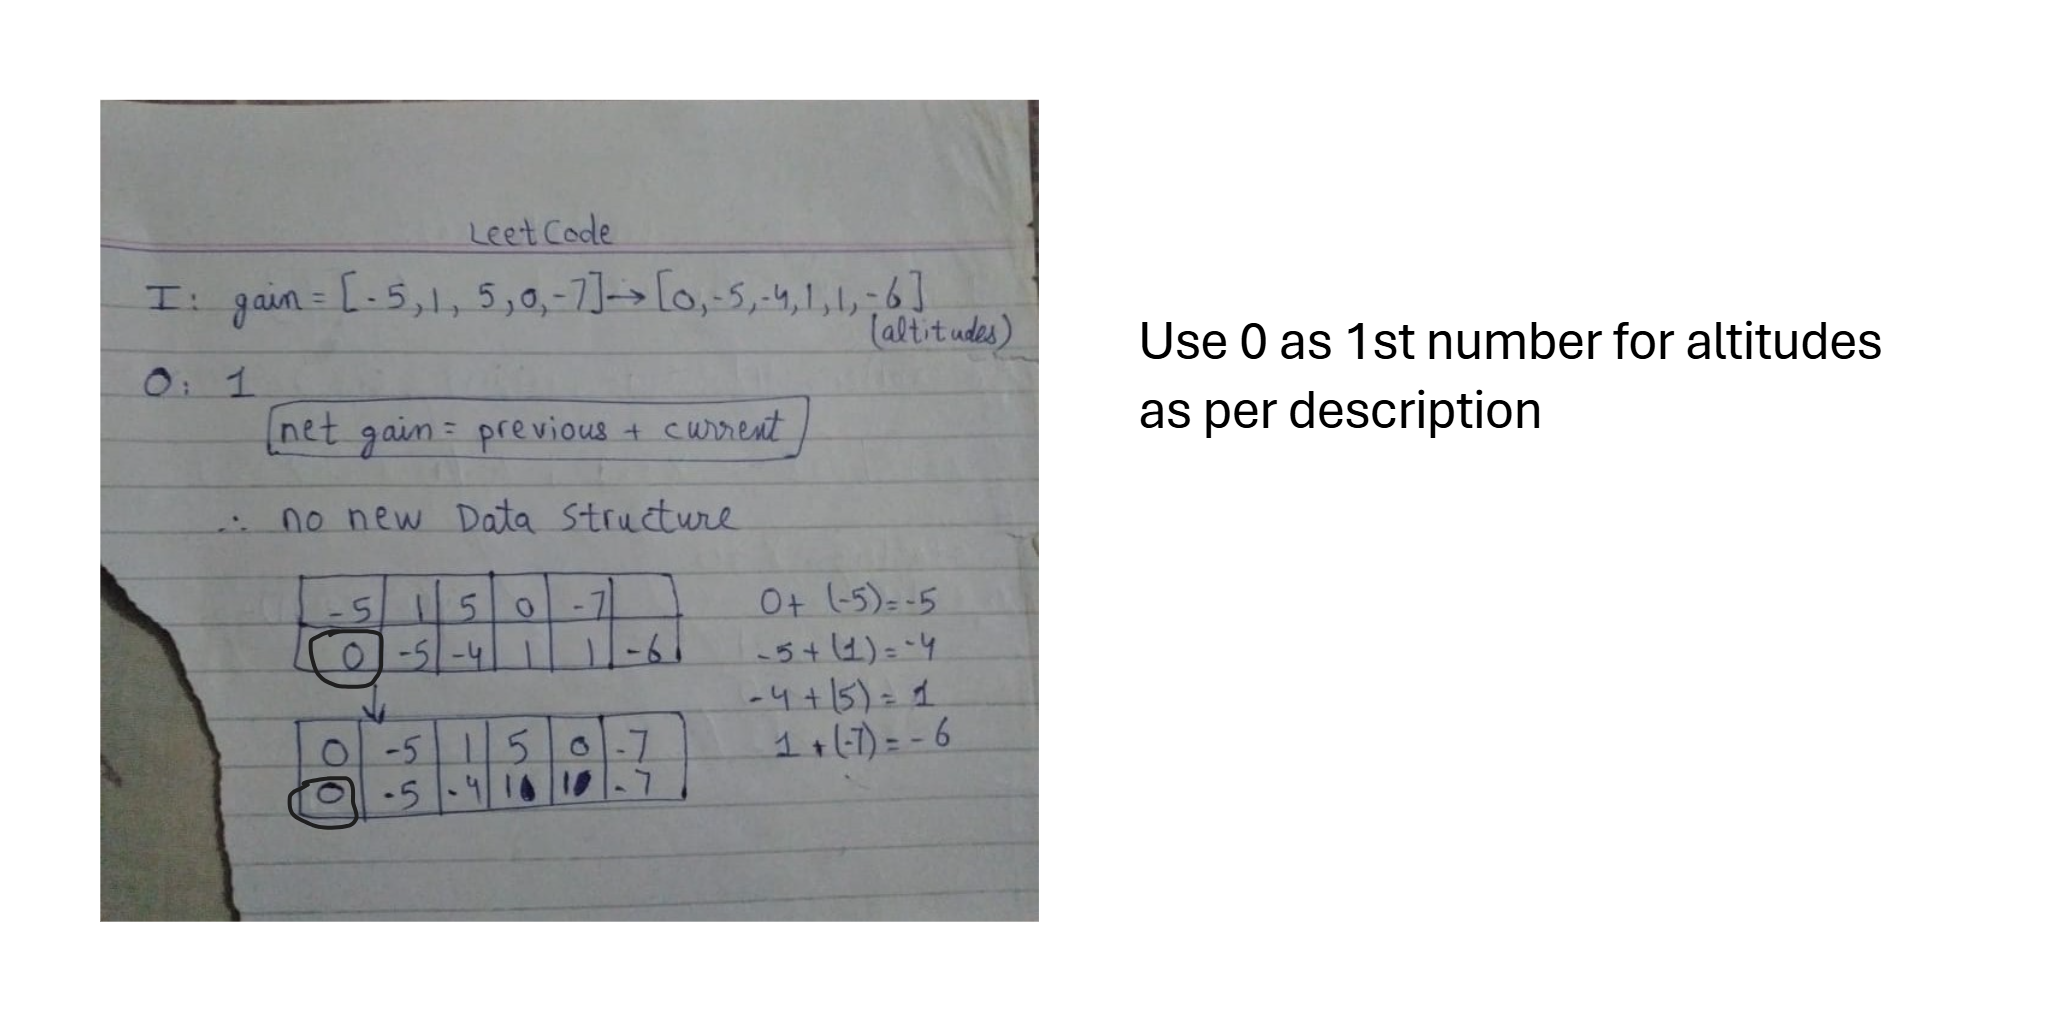 LeetCode
I: gain = [-5,1, 5,0,-7]→[0,-5,-4,1,1,-6]
(altitudes)
O: 1
net gain = previous + current
∴ no new Data Structure
-5 1 5 0 -7
0 -5 -4 1 1 -6
↓
0 -5 1 5 0 -7
0 -5 -4 1 1 -7
0+ (-5)=-5
-5+(1)=-4
-4+(5)= 1
1+(-7)=-6
Use 0 as 1st number for altitudes
as per description